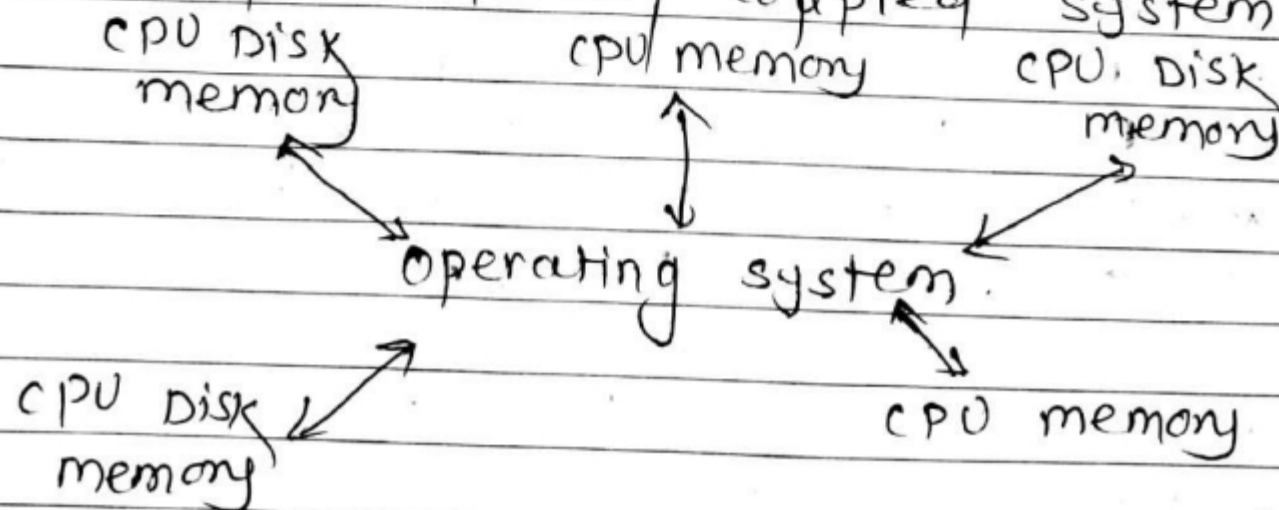 coupled system
CPU Disk
memory
CPU memory
CPU. Disk
memory
operating system.
CPU Disk
memory
CPU memory